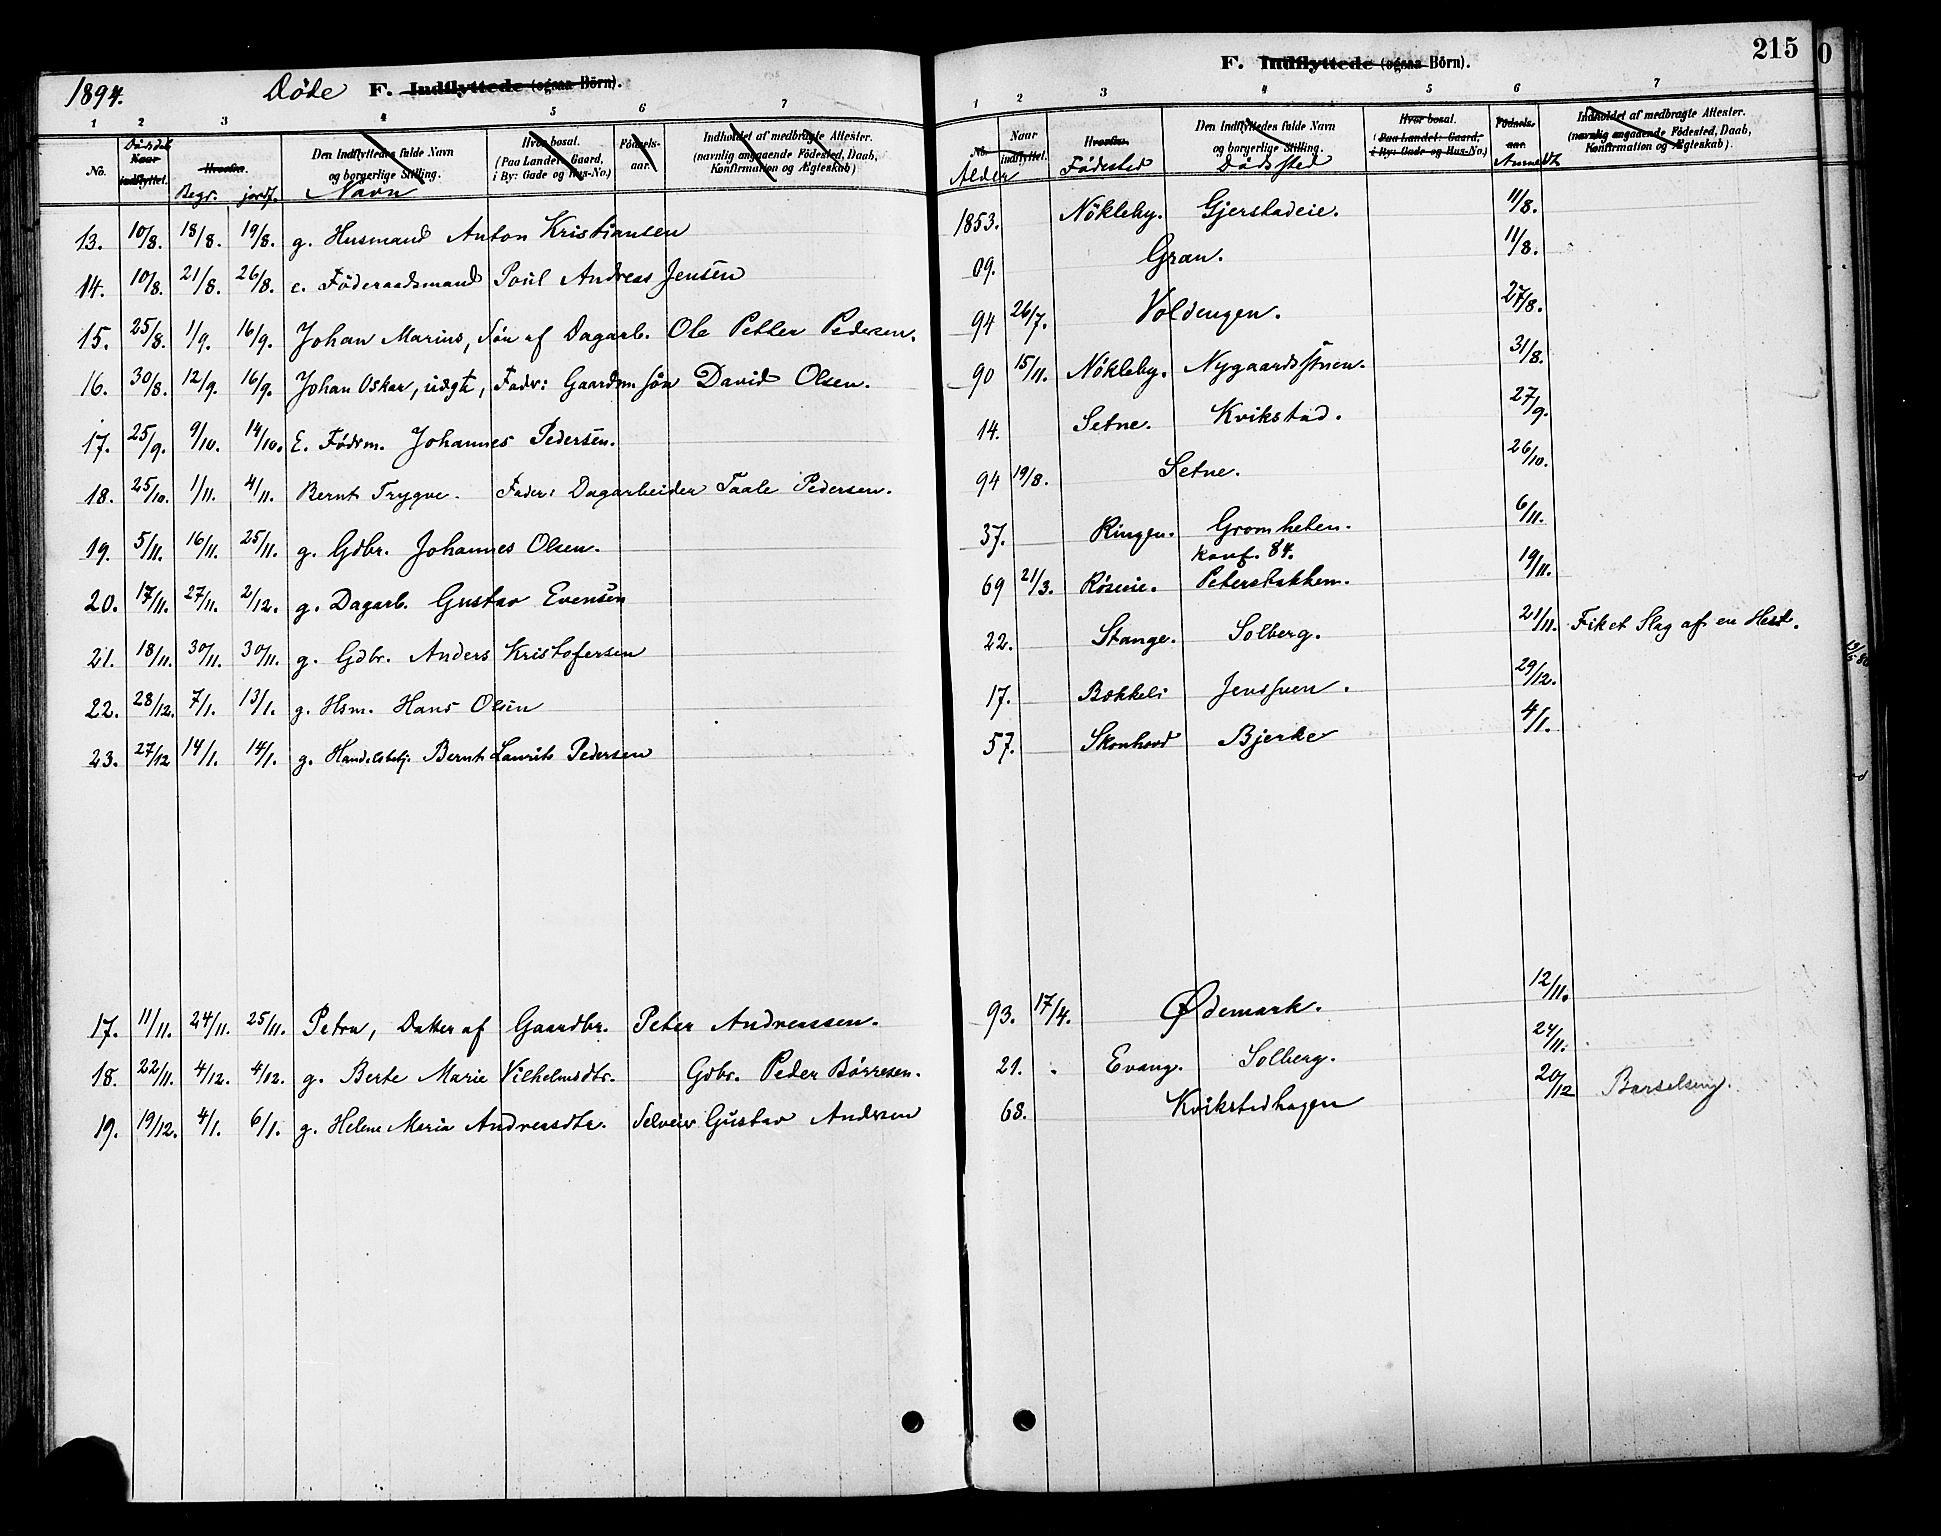 1894. Døde F. Indflyttede (ogsaa Börn).
1 2 3 4 5 6 7
No. Dødsdat. Naar indflyttet. Hvorfra. Begr. jordf. Den Indflyttedes fulde Navn og borgerlige Stilling. Navn Hvor bosat. (Paa Landet: Gaard, i By: Gade og Hus-No.) Födselsaar. Indholdet af medbragte Attester. (navnlig angaaende Födested, Daab, Konfirmation og Ægteskab)
13. 10/8. 18/8. 19/8. g. Husmand Anton Kristiansen
14. 10/8. 21/8. 26/8. e. Føderaadsmand Poul Andreas Jensen
15. 25/8. 1/9. 16/9. Johan Marius, Søn af Dagarb. Ole Petter Pedersen.
16. 30/8. 12/9. 16/9. Johan Oskar, uægte, Fader: Gaardm.søn David Olsen.
17. 25/9. 9/10. 14/10. E. Fødrm. Johannes Pedersen.
18. 25/10. 1/11. 4/11. Bernt Trygve. Fader: Dagarbeider Taale Pedersen.
19. 5/11. 16/11. 25/11. g. Gdbr. Johannes Olsen.
20. 17/11. 27/11. 2/12. g. Dagarb. Gustav Evensen
21. 18/11. 30/11. 30/11. g. Gdbr. Anders Kristofersen
22. 28/12. 7/1. 13/1. g. Hsm. Hans Olsen
23. 27/12 14/1. 14/1. g. Handelsbetj. Bernt Laurits Pedersen
17. 11/11. 24/11. 25/11. Petra, Datter af Gaardbr. Peter Andreassen.
18. 22/11. 4/12. 4/12. g. Berte Marie Vilhelmsdtr. Gdbr. Peder Børresen.
19. 19/12. 4/1. 6/1. g. Helene Maria Andreasdtr. Selveier Gustav Andersen
F. Indflyttede (ogsaa Börn). 215
1 2 3 4 5 6 7
No. Alder Naar indflyttet. Hvorfra. Fødested Den Indflyttedes fulde Navn og borgerlige Stilling. Dødssted Hvor bosat. (Paa Landet: Gaard, i By: Gade og Hus-No.) Födselsaar. Anmeldt Indholdet af medbragte Attester. (navnlig angaaende Födested, Daab, Konfirmation og Ægteskab).
1853. Nökleby. Gjerstadeie. 11/8.
09. Gran. 11/8.
94 26/7. Voldengen. 27/8.
90 15/11. Nökleby. Nygaardsstuen. 31/8.
14. Setne. Kvikstad. 27/9.
94 19/8. Setne. 26/10.
37. Ringen. Gromheten. 6/11.
konf. 84.
69 21/3. Röseie. Petersbakken. 19/11.
22. Stange. Solberg. 21/11. Fiket Slag af en Hest.
17. Bækkeli 29/12.
57. Skonhovd Bjerke 4/1.
93. 17/4. Ødemark. 12/11.
21. Evang. Solberg. 24/11.
68. Kvikstadhagen 20/12 Barselseng.